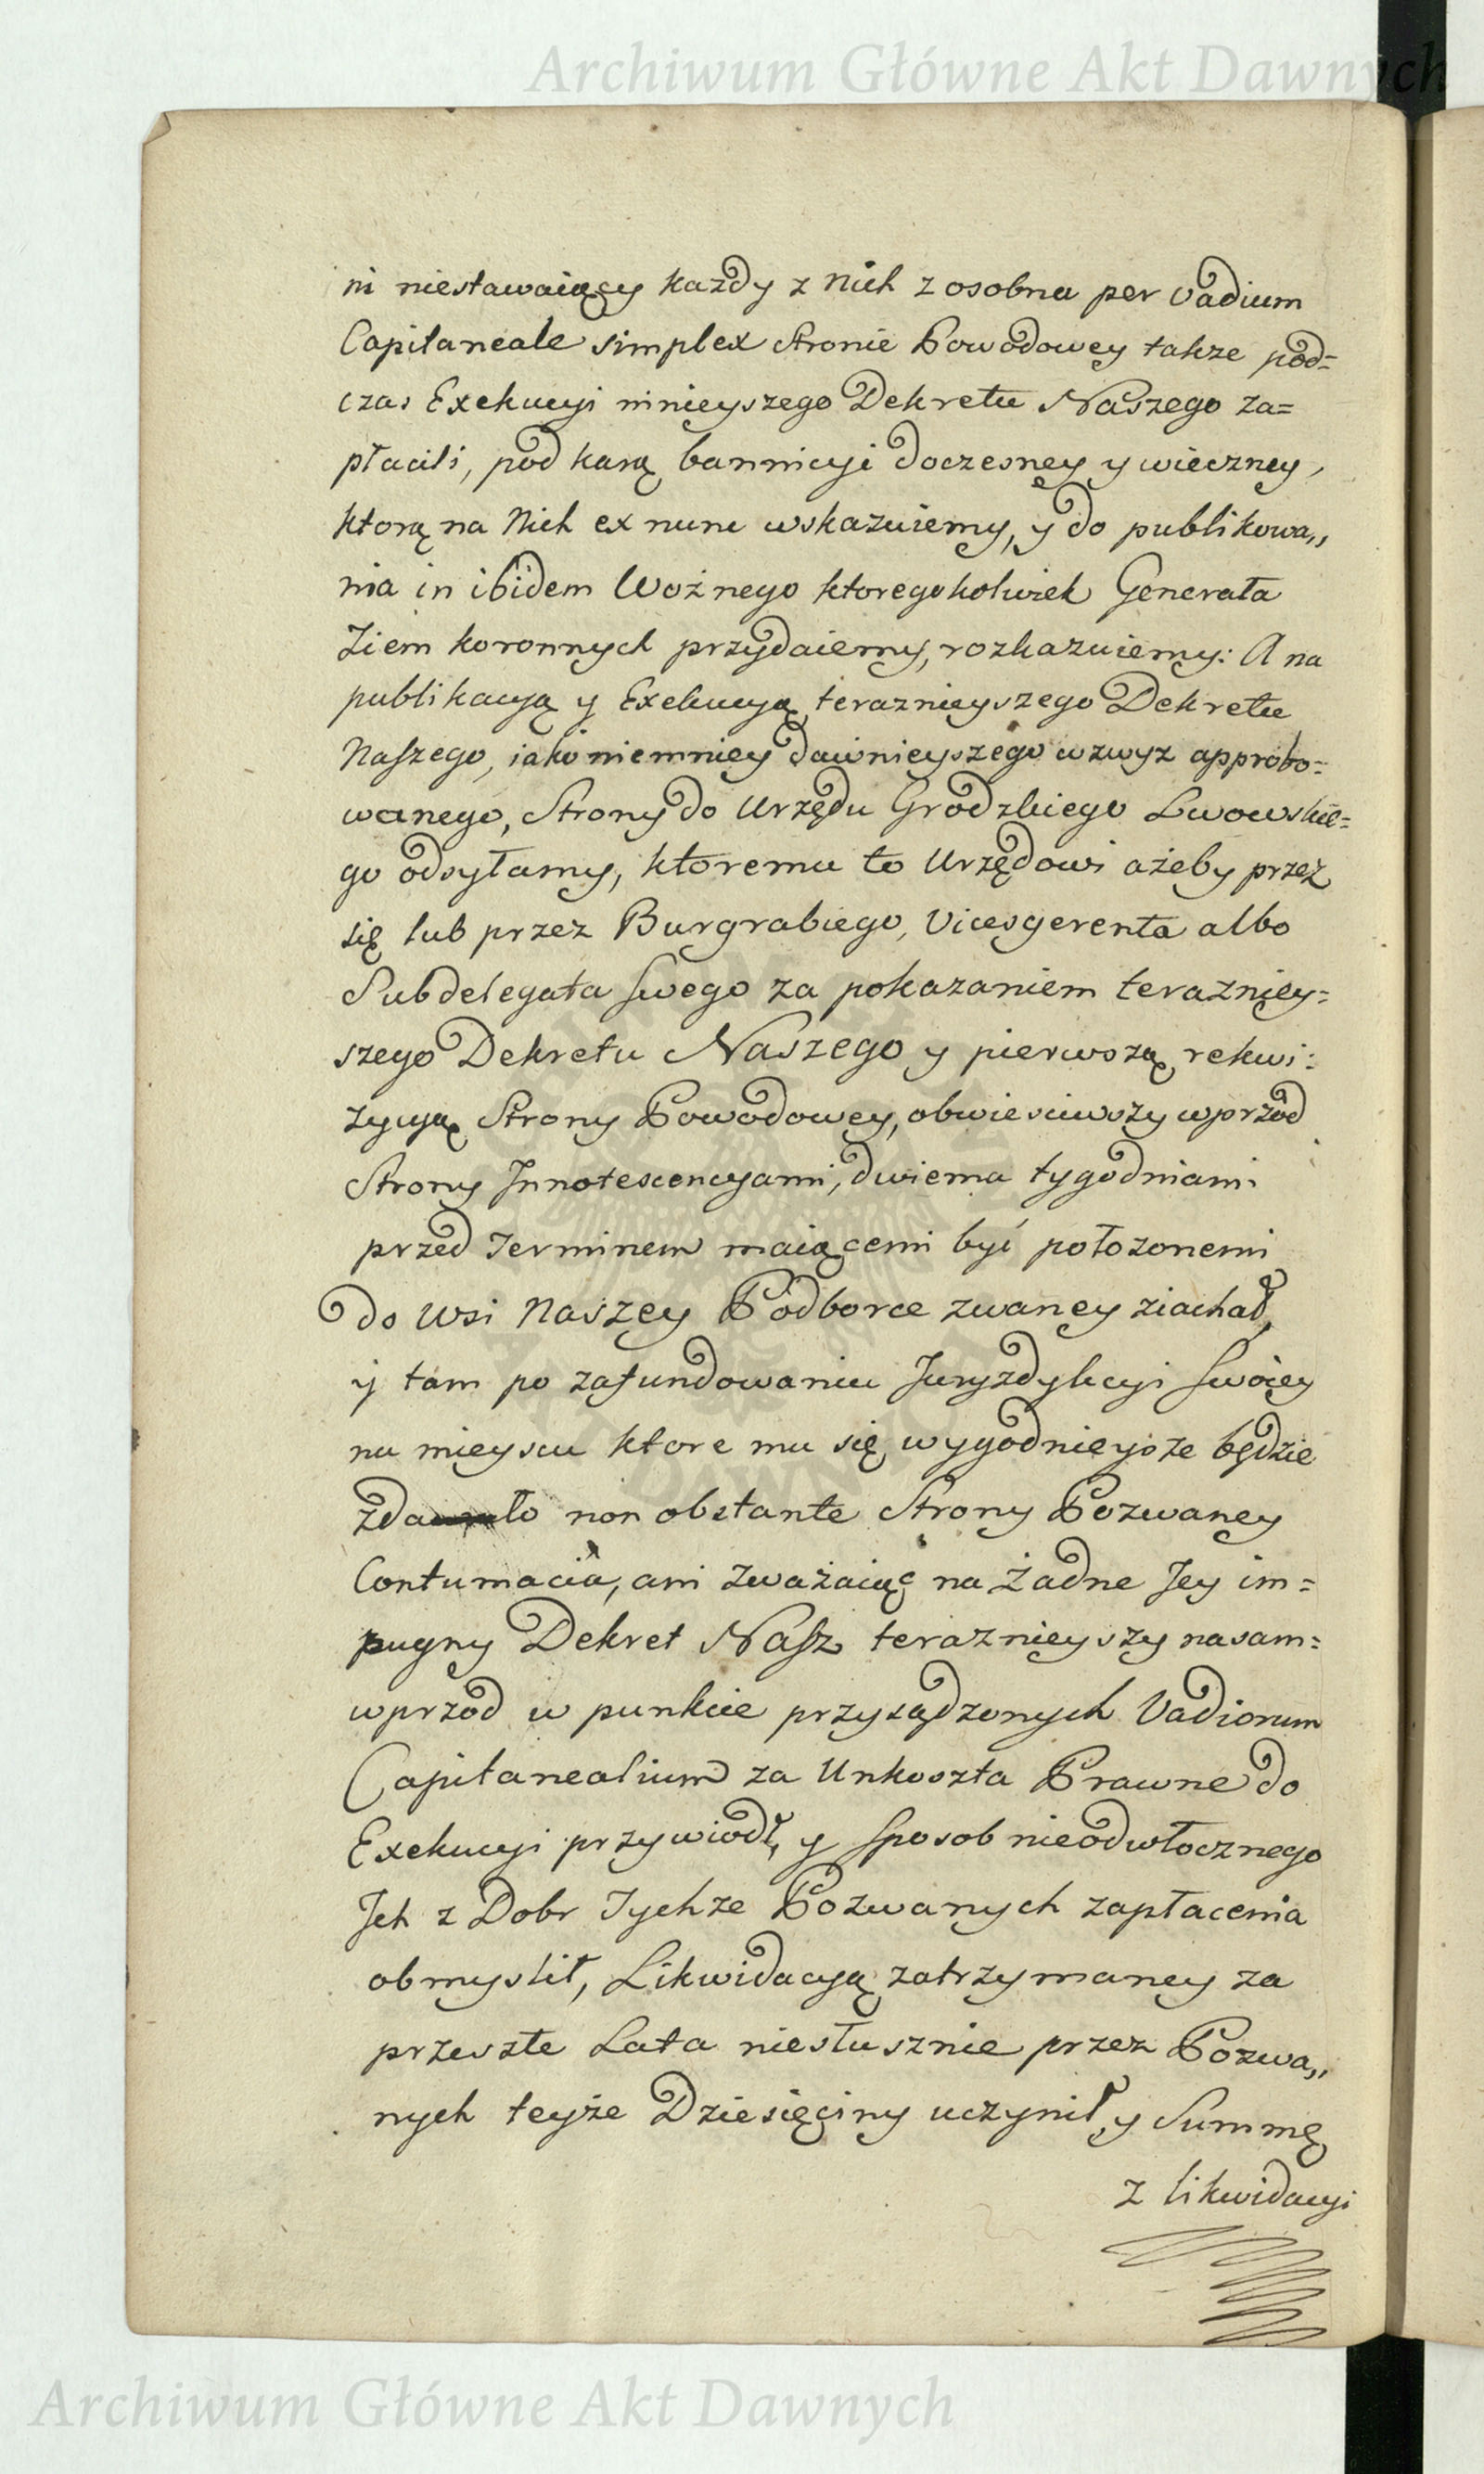 Archiwum Główne Akt Dawnych
ni niestawaiący każdy z Nich z osobna per Vadium
Capitaneale simplex Stronie Powodowey takze pod=
czas Exekucyi ninieyszego Dekretu Naszego za=
płacili, pod karą bannicyi doczesney y wieczney,
ktorą na Nich ex nunc wskazuiemy, y do publikowa„
nia in ibidem Woźnego ktoregokolwiek Generała
Ziem koronnych przydaiemy, rozkazuiemy: A na
publikacyą y Exekucyą teraznieyszego Dekretu
Naszego, iako niemniey dawnieyszego wzwyz approbo=
wanego, Strony do Urzędu Grodzkiego Lwowskie=
go odsyłamy, ktoremu to Urzędowi ażeby przez
się lub przez Burgrabiego, Vicesgerenta albo
Subdelegata swego za pokazaniem terazniey=
szego Dekretu Naszego y pierwszą rekwi:
zycyą Strony Powodowey, obwiesciwszy wprzod
Strony Innotescencyami, dwiema tygodniami
przed Terminem maiącemi być położonemi
do Wsi Naszey Podborce zwaney ziachał,
y tam po zafundowaniu Juryzdykcyi swoiey
na mieyscu ktore mu się wygodnieysze będzie
zdało non obstante Strony Pozwaney
Contumacia, ani zważaiąc na żadne Jey im=
pugny Dekret Nasz teraznieyszy nasam=
wprzod w punkcie przysądzonych Vadiorum
Capitanealium za Unkoszta Prawne do
Exekucyi przywiodł, y sposob nieodwłocznego
Jch z Dobr Tychze Pozwanych zapłacenia
obmyslił, Likwidacyą zatrzymaney za
przeszłe Lata niesłusznie przez Pozwa„
nych teyże Dziesięciny uczynił, y Summę
z likwidacyi
Archiwum Główne Akt Dawnych